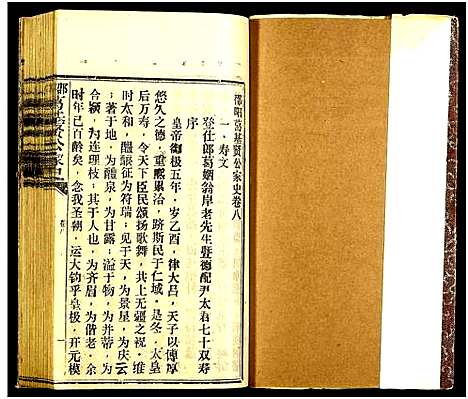 邵阳葛基贤公家史卷八
一·寿文
登仕郎葛姻翁岸老先生暨德配尹太君七十双寿
序
皇帝御极五年，岁乙酉，律大吕，天子以博厚
悠久之德，重熙累洽，跻斯民于仁域，是冬，太皇
后万寿，令天下臣民颂扬歌舞，共上无疆之祝，维
时太和，醲酿征为符瑞；见于天，为景星，为庆云
；著于地，为醴泉，为甘露；溢于物，为并蒂，为
合颖，为连理枝；其于人，为齐眉，为偕老，余
时年已百龄矣，念我圣朝，运大钧乎皇极，开元模
卷八
一